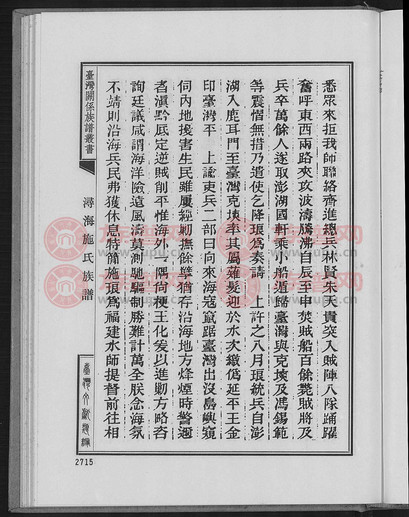 悉眾來拒我師聯絡齊進總兵林賢朱天貴突入賊陣八隊踊躍
奮呼東西兩路夾攻波濤騰沸自辰至申焚賊船百餘斃賊將及
兵卒萬餘人遂取澎湖國軒乘小船遁歸臺灣與克塽及馮錫範
等震慴無措乃遣使乞降琅為奏請　上許之八月琅統兵自澎
湖入鹿耳門至臺灣克塽率其屬薙髮迎於水次繳偽延平王金
印臺灣平　上諭吏兵二部曰向來海寇竄踞臺灣出沒島嶼窺
伺內地擾害生民雖屢經勦撫餘孽猶存沿海地方烽煙時警邇
者滇黔底定逆賊削平惟海外一隅尚梗王化爰以進勦方略咨
詢廷議咸謂海洋險遠風濤莫測馳驅制勝難計萬全朕念海氛
不靖則沿海兵民弗獲休息特簡施琅為福建水師提督前往相
臺灣關係族譜叢書
潯海施氏族譜
2715